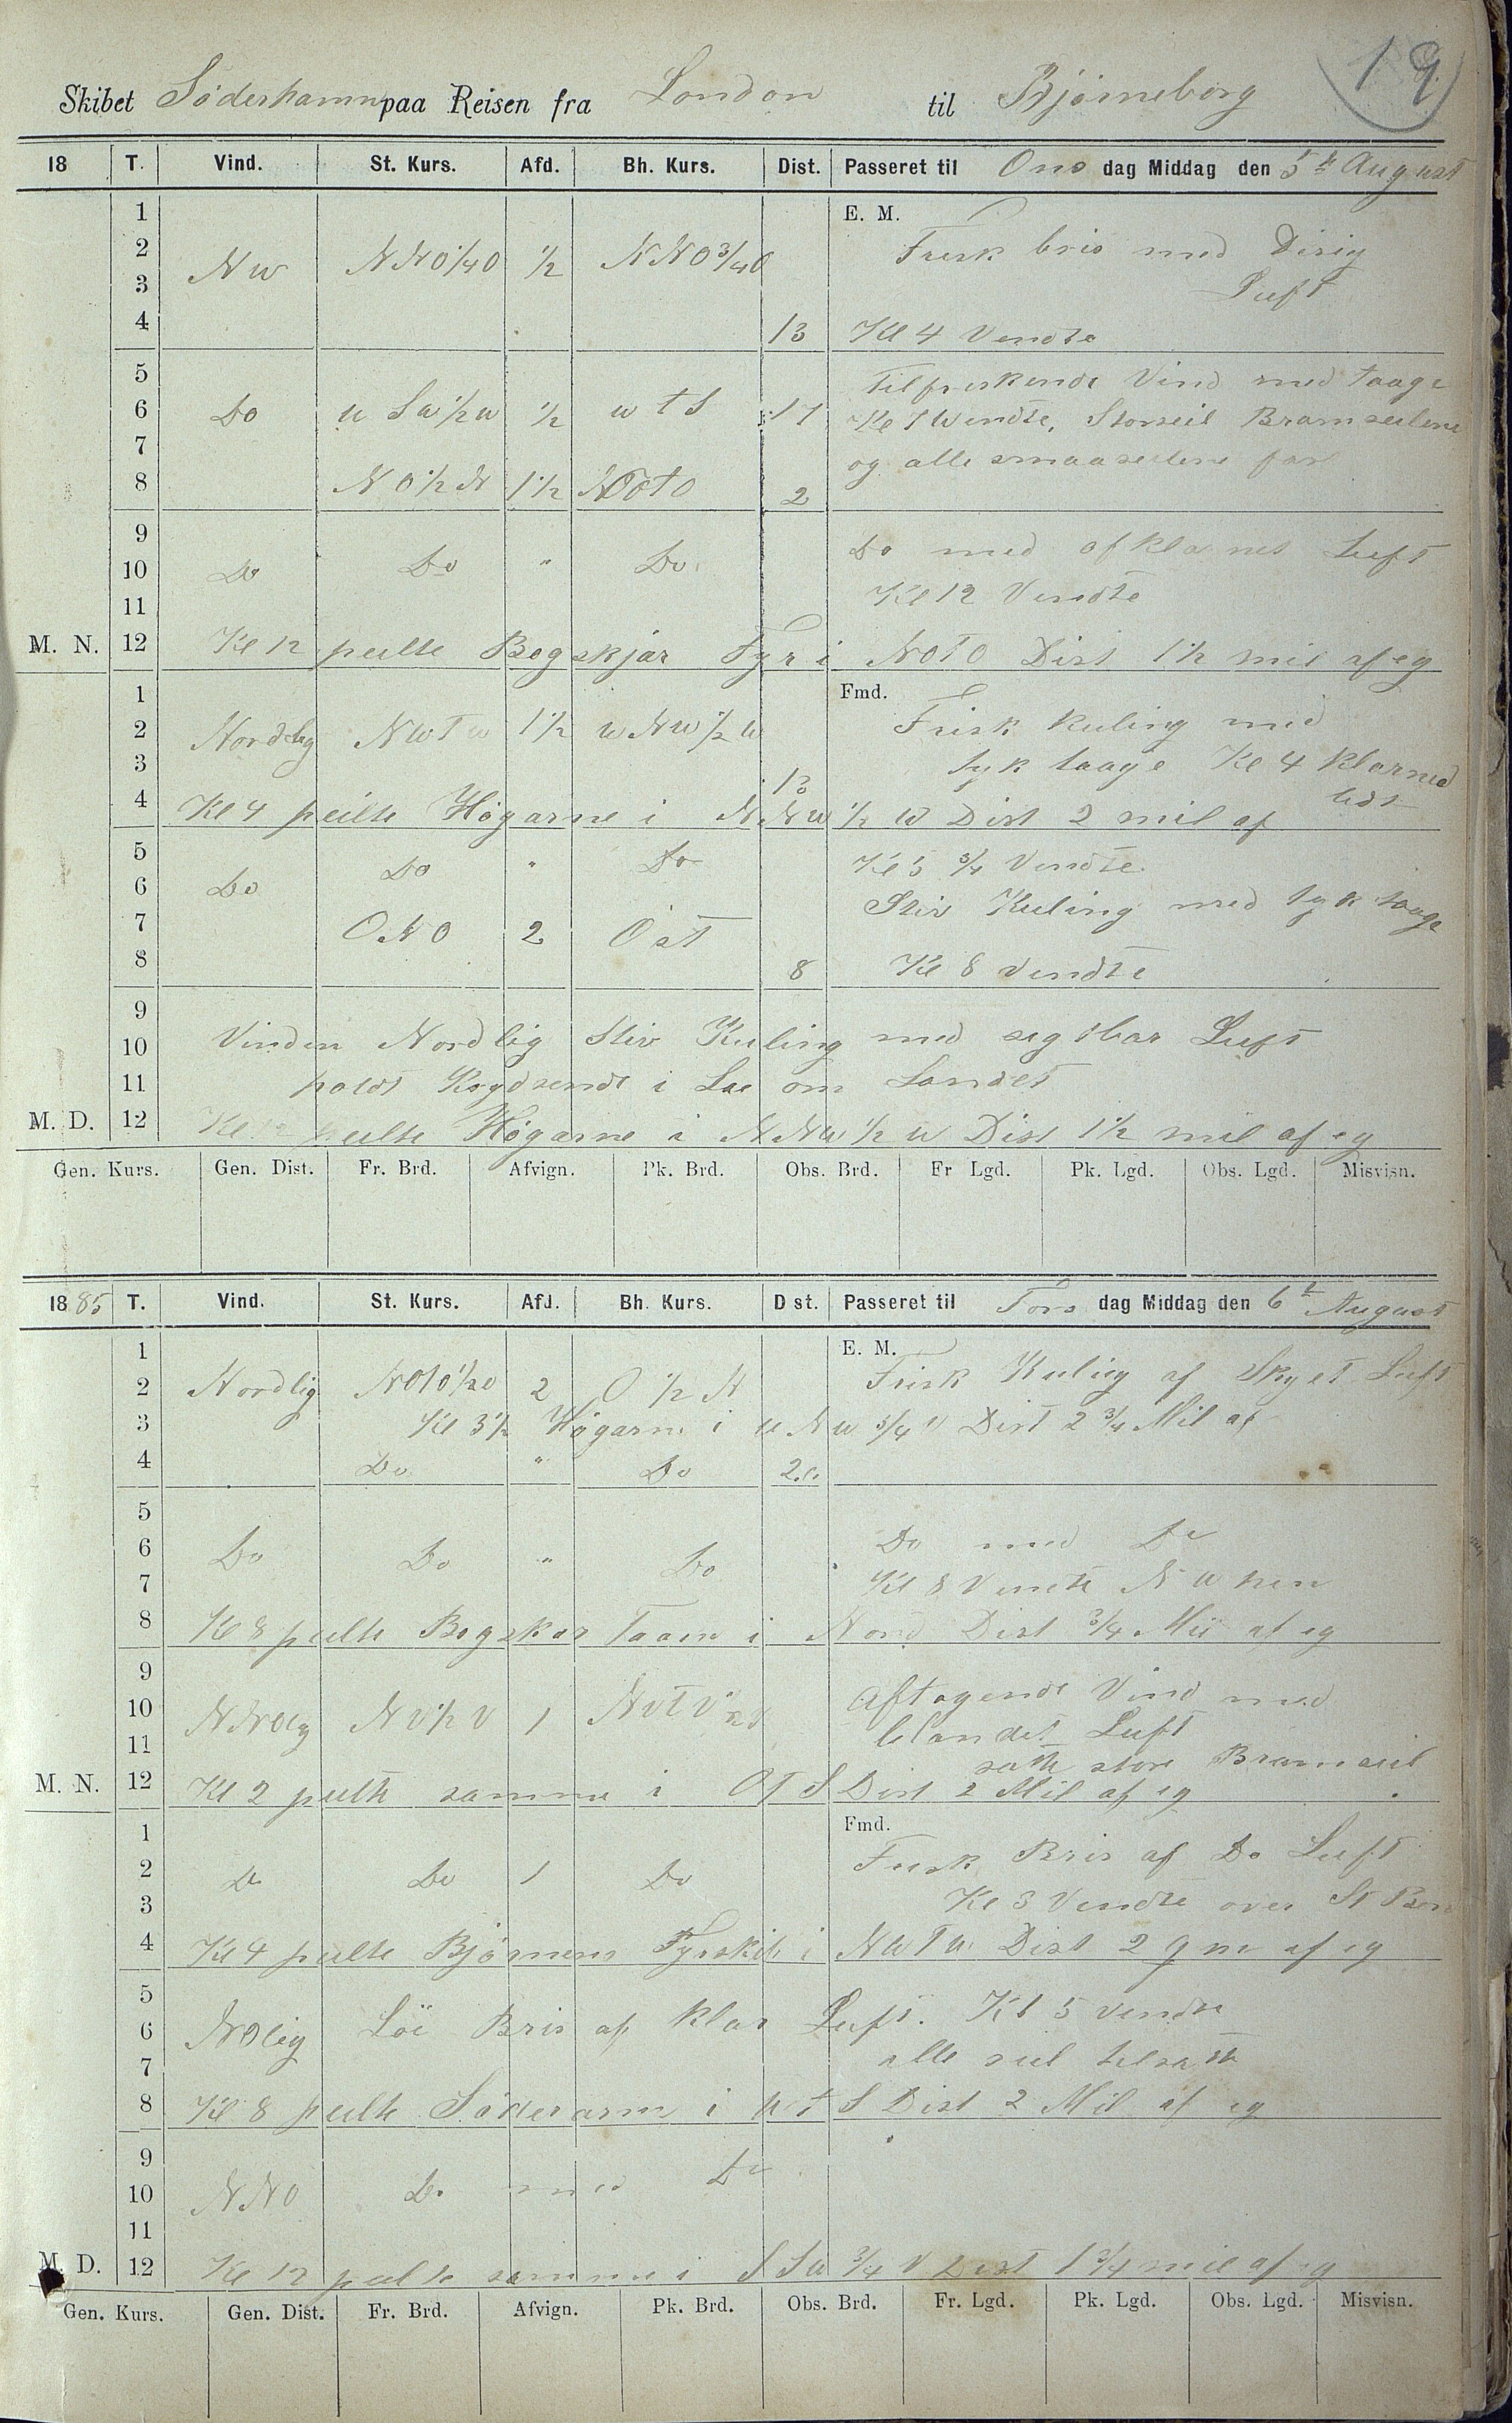 19
Skibet Söderhamn paa Reisen fra London til Bjørneborg
18 T. Vind. St. Kurs. Afd. Bh. Kurs. Dist. Passeret til Ons dag Middag den 5te August
1 E. M.
2 NW NNO1/4O 1/2 NNO3/4O Frisk bris med Disig
3 Luft
4 13 Kl 4 Vendte
5 Tilfriskende Vind med taage
6 Do W SW1/2W 1/2 W t S 17 Kl 7 Wendte, Storseil Bramseilene
7 og alle smaaseilene fast
8 NO1/2N 1 1/2 NOtO 2
9 Do med afklarnet Luft
10 Do Do " Do
11 Kl 12 Vendte
M. N. 12 Kl 12 peilte Bogskjär Fyr i NOTO Dist 1 1/2 mil afeg
1 Fmd.
2 Nordlig NWTW 1 1/2 WNW1/2W Frisk Kuling med
3 tyk taage Kl 4 klarned
13
4 Kl 4 peilte Högarne i NNW 1/2 W Dist 2 mil af
5 Do " Do Kl 5 3/4 Vendte
6 Do Stiv Kuling med tyk taage
7 ONO 2 Ost
8 8 Kl 8 Vendte
9
10 Vinden Nordlig Stiv Kuling med sigtbar Luft
11 holdt Krydsende i Lae om Landet
M. D. 12 Kl 12 peilte Högarne i NNW 1/2 W Dist 1 1/2 mil afeg
Gen. Kurs. Gen. Dist. Fr. Brd. Afvign. Pk. Brd. Obs. Brd. Fr Lgd. Pk. Lgd. Obs. Lgd. Misvisn.
1885 T. Vind. St. Kurs. Afd. Bh. Kurs. Dist. Passeret til Tors dag Middag den 6te August
1 E. M.
2 Nordlig NOtO1/2O 2 O 1/2 N Frisk Kuling af Skyet Luft
3 Kl 3 1/2 Högarne i WNW 3/4 V Dist 2 3/4 Mil af
4 Do " Do
5
6 Do Do " Do Do med Do
7 Kl 8 Vendte NW
8 Kl 8 peilte Bogskär Taarn i Nord Dist 3/4 Mil af eg
9
10 NNOlig NV1/2V 1 NVTV Aftagende Vind med
11 blandet Luft
satte store Bramseil
M. N. 12 Kl 2 peilte samme i OTS Dist 2 Mil af eg
1 Fmd.
2 Do Do 1 Do Frisk Bris af Do Luft
3 Kl 3 Vendte over St
4 Kl 4 peilte Björnens Fyrskib i NWTW Dist 2 qm af eg
5
6 NOlig Löi Bris af klar Luft. Kl 5 vendte
7 alle seil tilsatte
8 Kl 8 peilte Söderarm i W t S Dist 2 Mil af eg
9
10 NNO Do med Do
11
M. D. 12 Kl 12 peilte samme i SSW 3/4 V Dist 1 3/4 mil af eg
Gen. Kurs. Gen. Dist. Fr. Brd. Afvign. Pk. Brd. Obs. Brd. Fr. Lgd. Pk. Lgd. Obs. Lgd. Misvisn.